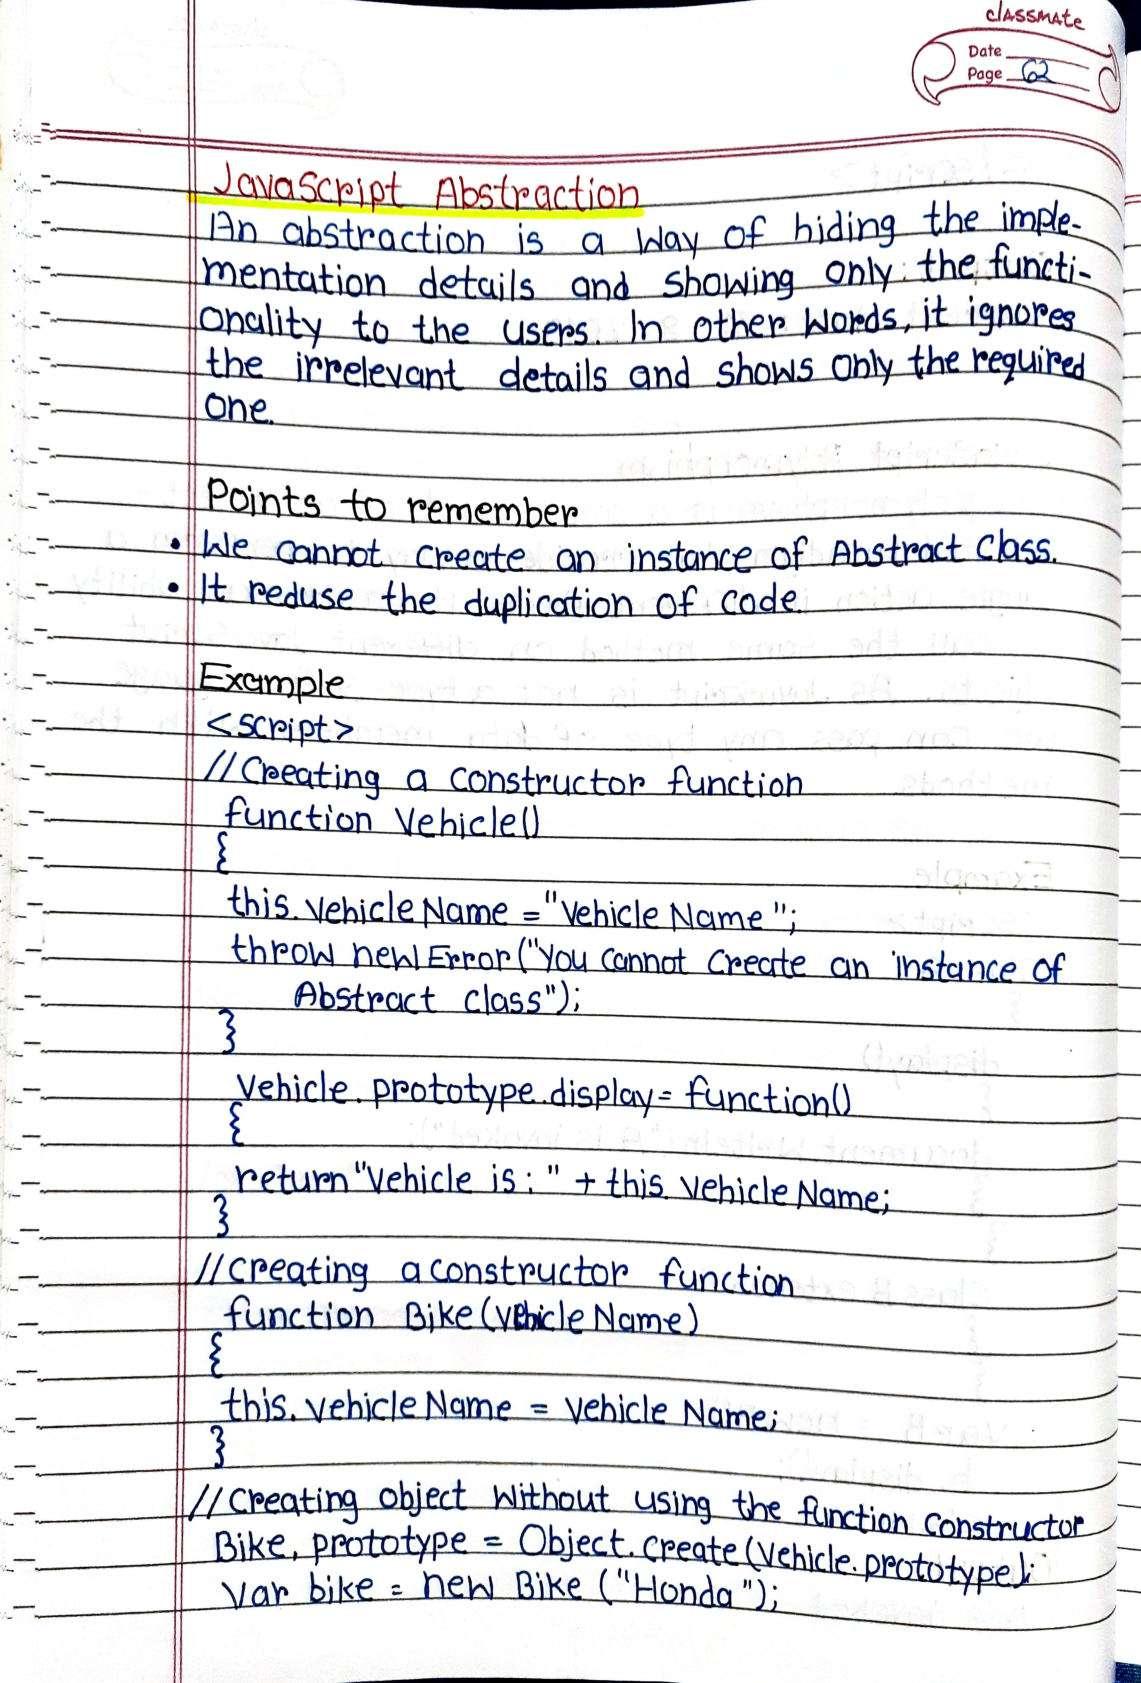 classmate
Date
Page 62
JavaScript Abstraction
An abstraction is a way of hiding the imple-
mentation details and showing only the functi-
onality to the users. In other words, it ignores
the irrelevant details and shows only the required
one.
Points to remember
• We cannot create an instance of Abstract Class.
• It reduse the duplication of code.
Example
<script>
//Creating a constructor function
function Vehicle()
{
this.vehicleName = "vehicleName";
throw new Error("You cannot create an instance of
Abstract class");
}
Vehicle.prototype.display = function()
{
return "Vehicle is: " + this.vehicleName;
}
//Creating a constructor function
function Bike(vehicleName)
{
this.vehicleName = vehicleName;
}
//Creating object without using the function constructor
Bike.prototype = Object.create(Vehicle.prototype);
var bike = new Bike ("Honda");